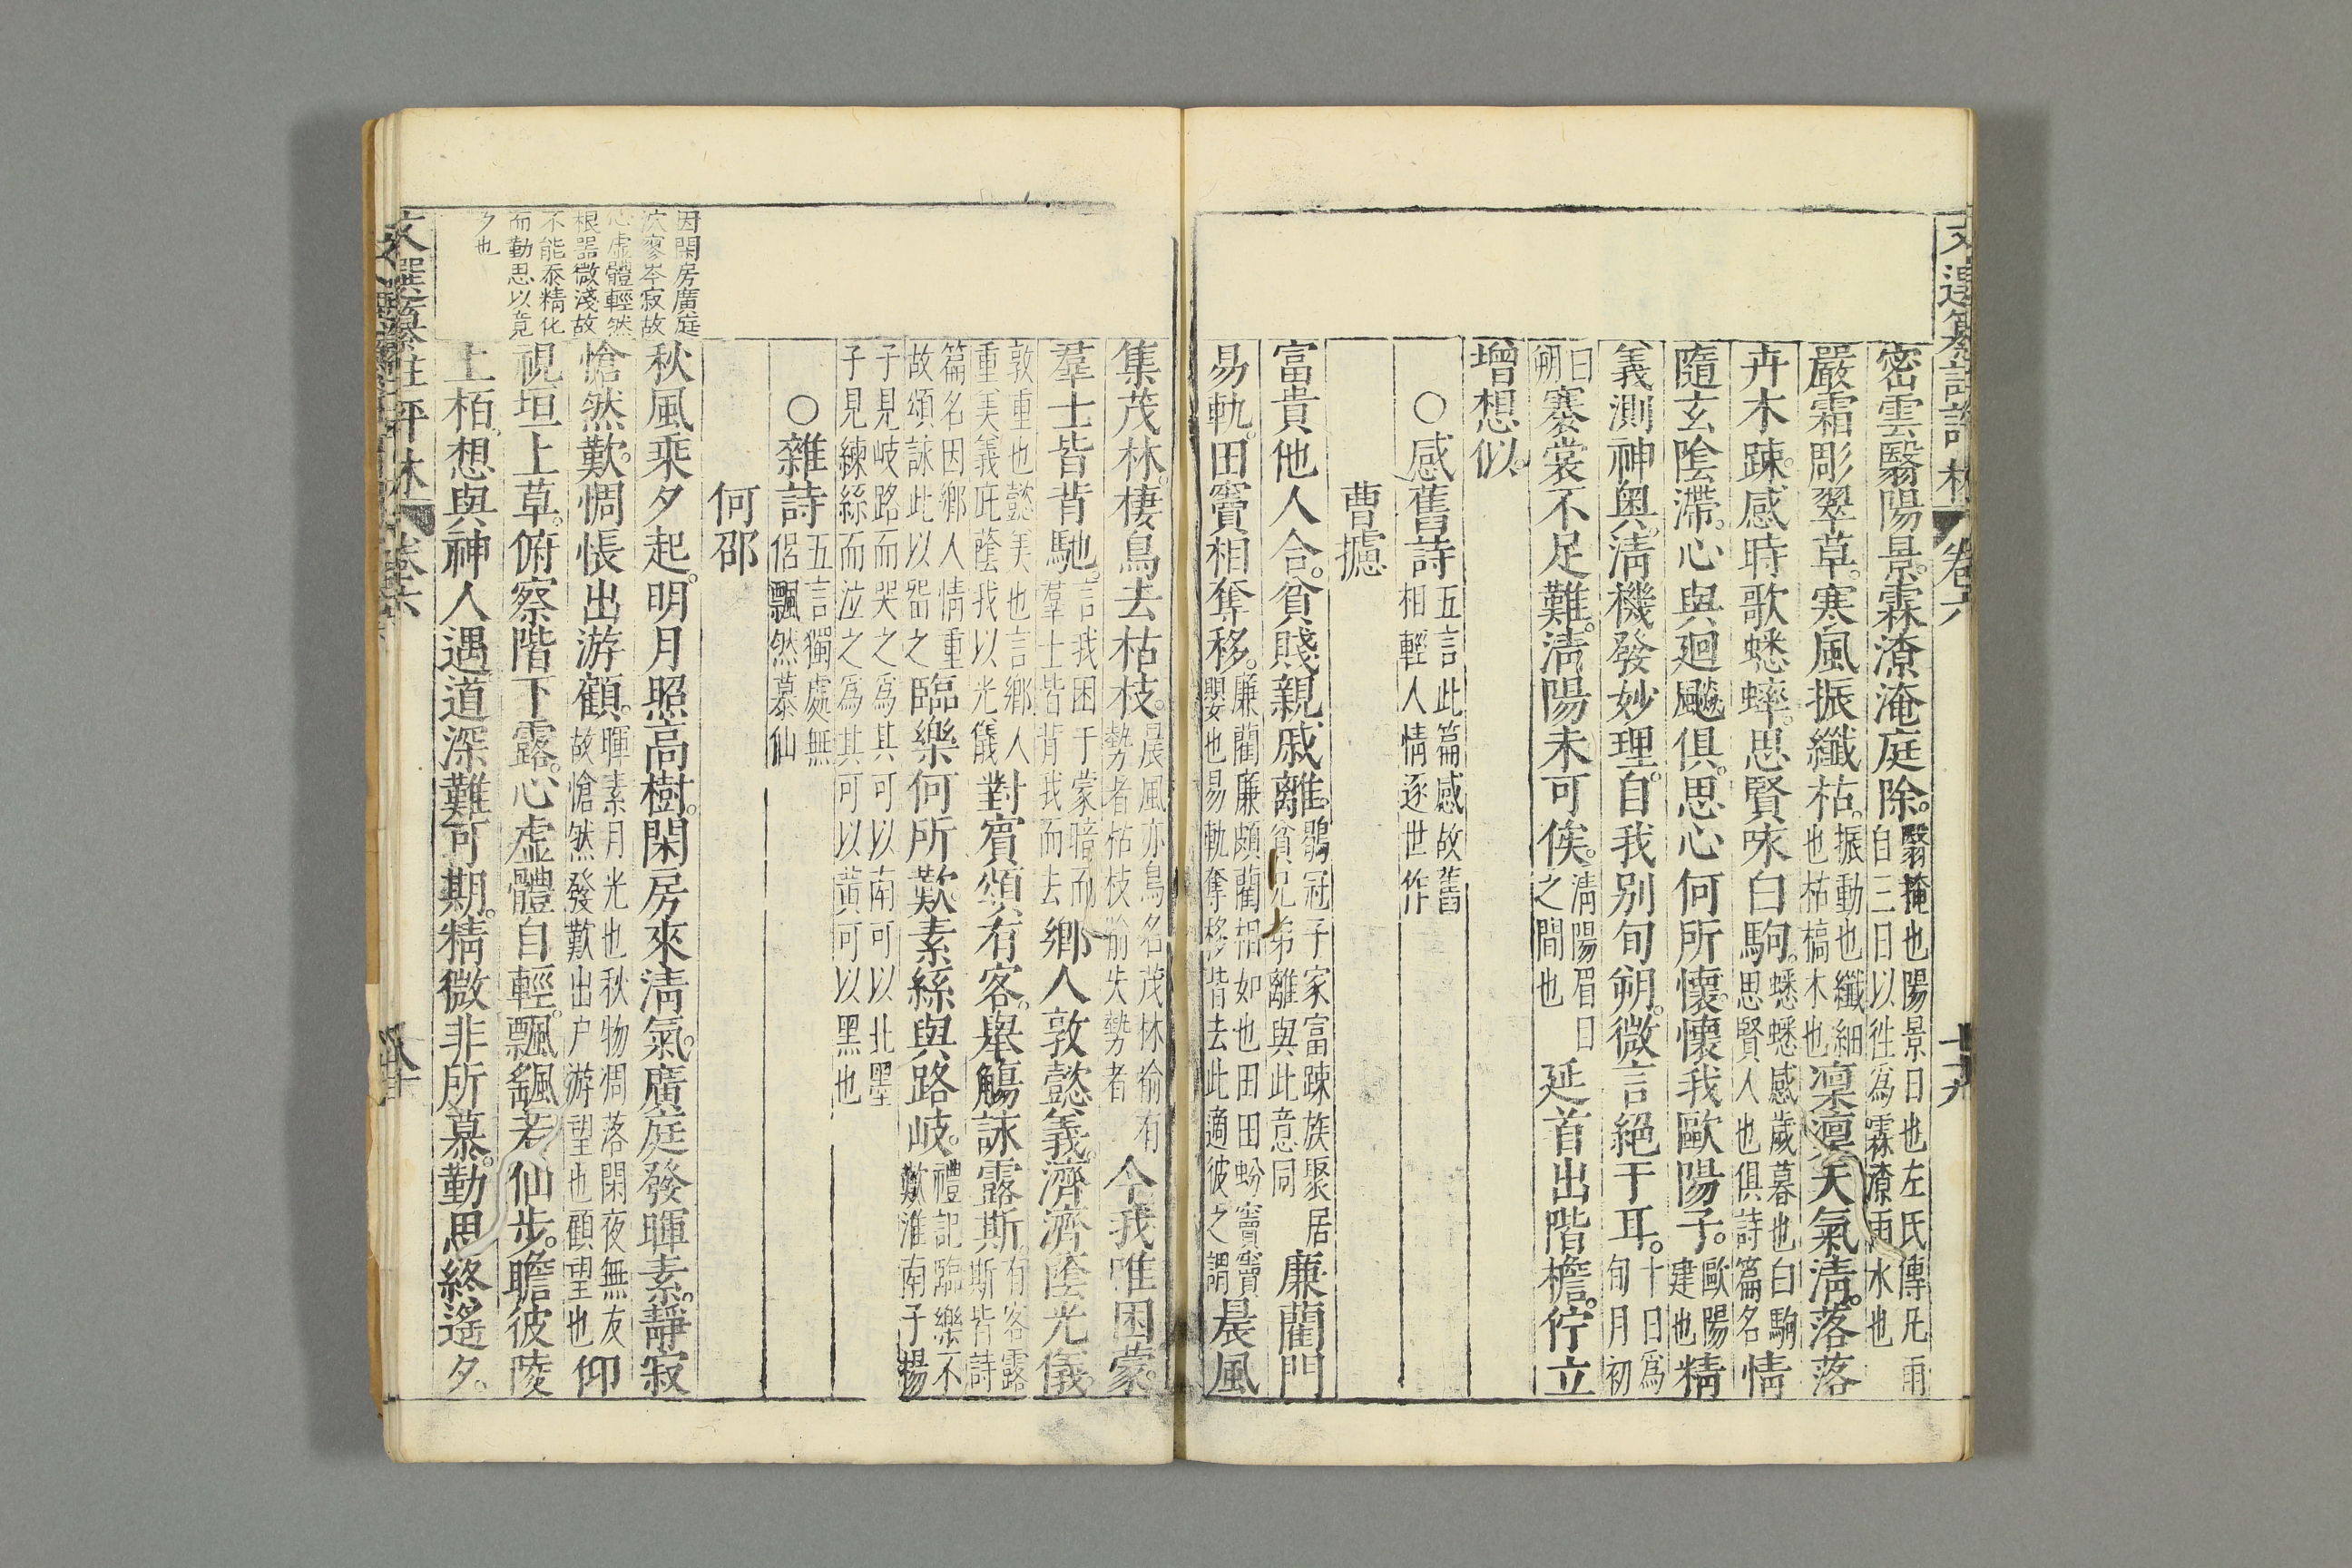 文選纂註評林 卷六 七十九
密雲翳陽景。霖潦淹庭除。翳掩也陽景日也左氏傳凡雨自三日以徃爲霖潦雨水也
嚴霜彫翠草。寒風振纖枯。振動也纖細也枯槁木也凜凜天氣淸。落落
卉木踈。感時歌蟋蟀。思賢咏白駒。蟋蟀感歲暮也白駒思賢人也俱詩篇名情
隨玄陰滯。心與廻飈俱。思心何所懷。懷我歐陽子。歐陽建也精
義測神奥。淸機發妙理。自我别旬朔。微言絕于耳。十日爲旬月初
日朔褰裳不足難。淸陽未可俟。淸陽眉目之間也延首出階檐。佇立
增想似。
○感舊詩五言此篇感故舊相輕人情逐世作
曹攄
富貴他人合。貧賤親戚離。鶡冠子家富踈族聚居貧兄弟離與此意同廉藺門
易軌。田竇相奪移。廉藺廉頗藺相如也田田蚡竇竇嬰也易軌奪移皆去此適彼之謂晨風
集茂林。棲鳥去枯枝。晨風亦鳥名茂林喻有勢者枯枝喻失勢者今我唯困蒙。
羣士皆背馳。言我困于蒙暗而羣士皆背我而去鄉人敦懿義。濟濟蔭光儀。
敦重也懿美也言鄉人重美義庇蔭我以光儀對賓頌有客。舉觴詠露斯。有客露斯皆詩
篇名因鄉人情重故頌詠此以畱之臨樂何所歎。素絲與路岐。禮記臨樂不歎淮南子楊
子見岐路而哭之爲其可以南可以北墨子見練絲而泣之爲其可以黃可以黑也
○雜詩五言獨處無侶飄然慕仙
何邵
秋風乘夕起。明月照高樹。閑房來淸氣。廣庭發暉素。靜寂
愴然歎。惆悵出游顧。暉素月光也秋物凋落閑夜無友故愴然發歎出户游望也顧望也仰
視垣上草。俯察階下露。心虚體自輕。飄颻若仙步。瞻彼陵
上栢。想與神人遇。道深難可期。精微非所慕。勤思終遙夕。
因閑房廣庭
寂寥岑寂故
心虚體輕然
根器微淺故
不能泰精化
而勤思以竟
夕也
文選纂註評林 卷六